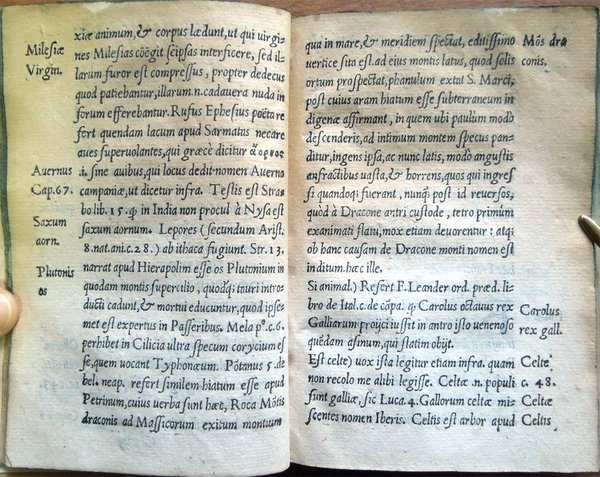 xiæ animum, & corpus lædunt, ut qui virgi-
Milesiæ
nes Milesias cõegit seipsas interficere, sed il-
Virgin.
larum furor est compressus, propter dedecus
quod patiebantur, illarum.n.cadauera nuda in
forum efferebantur. Rufus Ephesius poëta re
fert quendam lacum apud Sarmatas necare
aues superuolantes, qui græcè dicitur ἄορνος
Auernus
.i. sine auibus, qui locus dedit nomen Auerno
Cap.67.
campaniæ, ut dicetur infra. Testis est Stra
bo lib.15. ꝙ in India non procul à Nysa est
Saxum
saxum aornum. Lepores (secundum Arist.
aorn.
8.nat.ani.c.28.) ab ithaca fugiunt. Str.13.
narrat apud Hierapolim esse os Plutonium in
Plutonis
quodam montis supercilio, quodꝗ; tauri intro
os
ducti cadunt, & mortui educuntur, quod ipse
met est expertus in Passeribus. Mela p°.c.6.
perhibet in Cilicia ultra specum corycium es
se, quem uocant Typhonæum. Põtanus 5.de
bel.neap. refert similem hiatum esse apud
Petrinum, cuius uerba sunt hæc, Roca Mõtis
draconis ad Massicorum exitum montium
qua in mare, & meridiem spectat, editissimo
Mõs dra
uertice sita est. ad eius montis latus, quod solis
conis.
ortum prospectat, phanulum extat S. Marci,
post cuius aram hiatum esse subterraneum in
digenæ affirmant, in quem ubi paulum modo
descenderis, ad intimum montem specus pan
ditur, ingens ipsa, ac nunc latis, modò angustis
anfractibus uasta, & horrens, quos qui ingres
si quandoꝗ; fuerant, nunꝗ; post id reuersos,
quòd à Dracone antri custode, tetro primum
exanimati flatu, mox etiam deuorentur: atqi
ob hanc causam de Dracone monti nomen est
inditum. hæc ille.
Si animal.) Refert F. Leander ord. præd. li
bro de Ital.c.de cãpa. ꝙ Carolus octauus rex
Carolus
Galliarum proijci iussit in antro isto uenenoso
rex gall.
quẽdam asinum, qui slatim obijt.
Est celte) uox ista legitur etiam infra. quam
Celtę
non recolo me alibi legisse. Celtæ .n. populi
c. 48.
sunt galliæ, sic Luca.4. Gallorum celtæ mi
Celtæ
scentes nomen Iberis. Celtis est arbor apud
Celtis